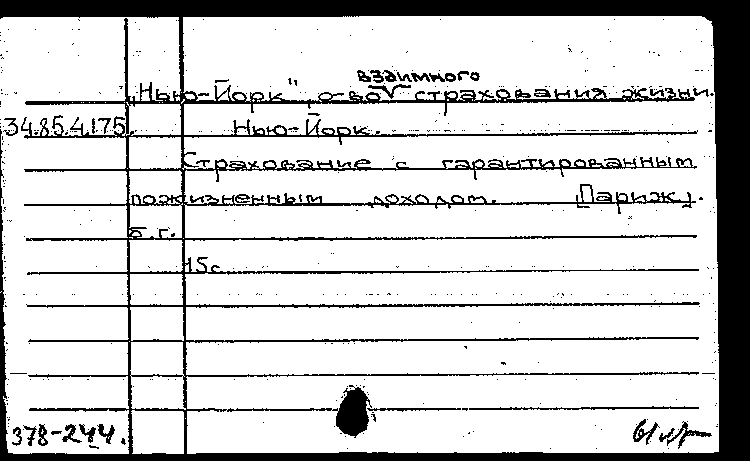 взаимного
„Нью-Йорк", о-во√ страхования жизни.
34.85.4.175. Нью-Йорк.
Страхование с гарантированным
пожизненным доходом. [Париж].
б.г.
15с
378-244.